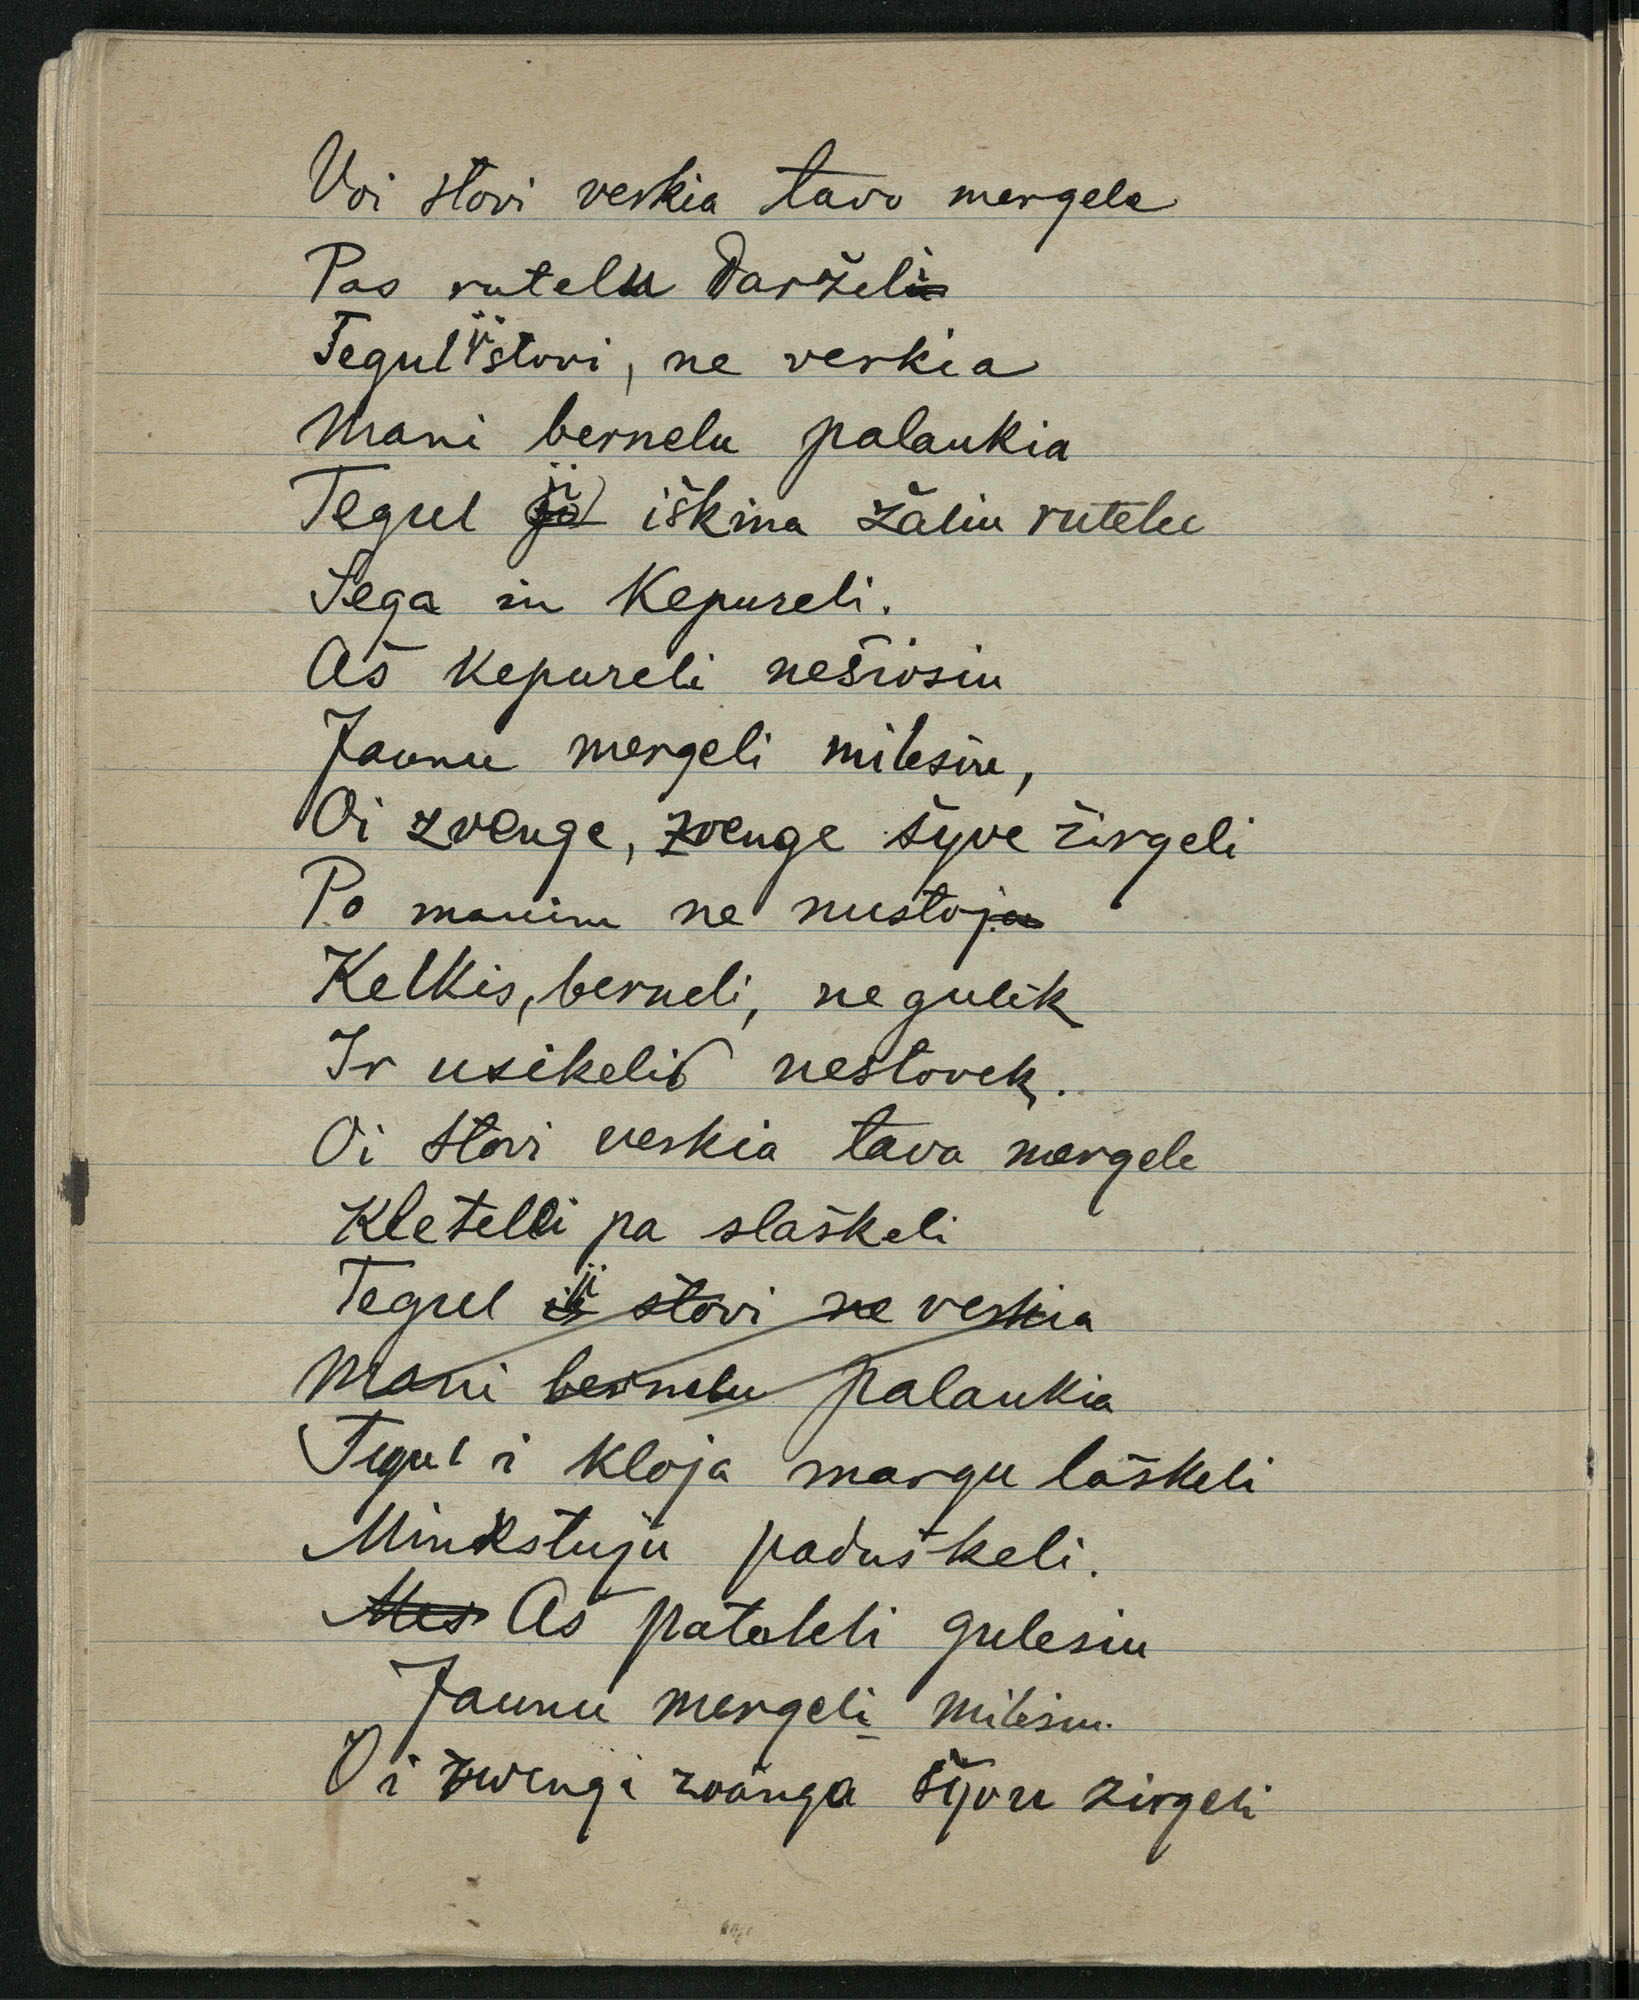 Voi stovi verkia tavo mergele
Pas rutelu darželi
Tegul ji stovi, ne verkia
Mani bernelu palaukia
Tegul ji iškina žaliu rutelu
Sega in Kepureli.
Aš kepureli nešiosiu
Jaunu mergeli milesiu,
Oi zvenge, zvenge šyve žirgeli
Po manim ne nustoja
Kelkis, berneli, ne gulėk
Ir usikelis nestovek.
Oi stovi verkia tava mergele
Kletelli pa slaškeli
Tegul ji stovi ne verkia
Mani bernelu palaukia
Tegul i kloja margu laškeli
Minkstuju paduškeli.
Mes Aš pataleli gulesiu
Jaunu mergeli milesiu.
Oi zwengi zvanga šyvu zirgeli